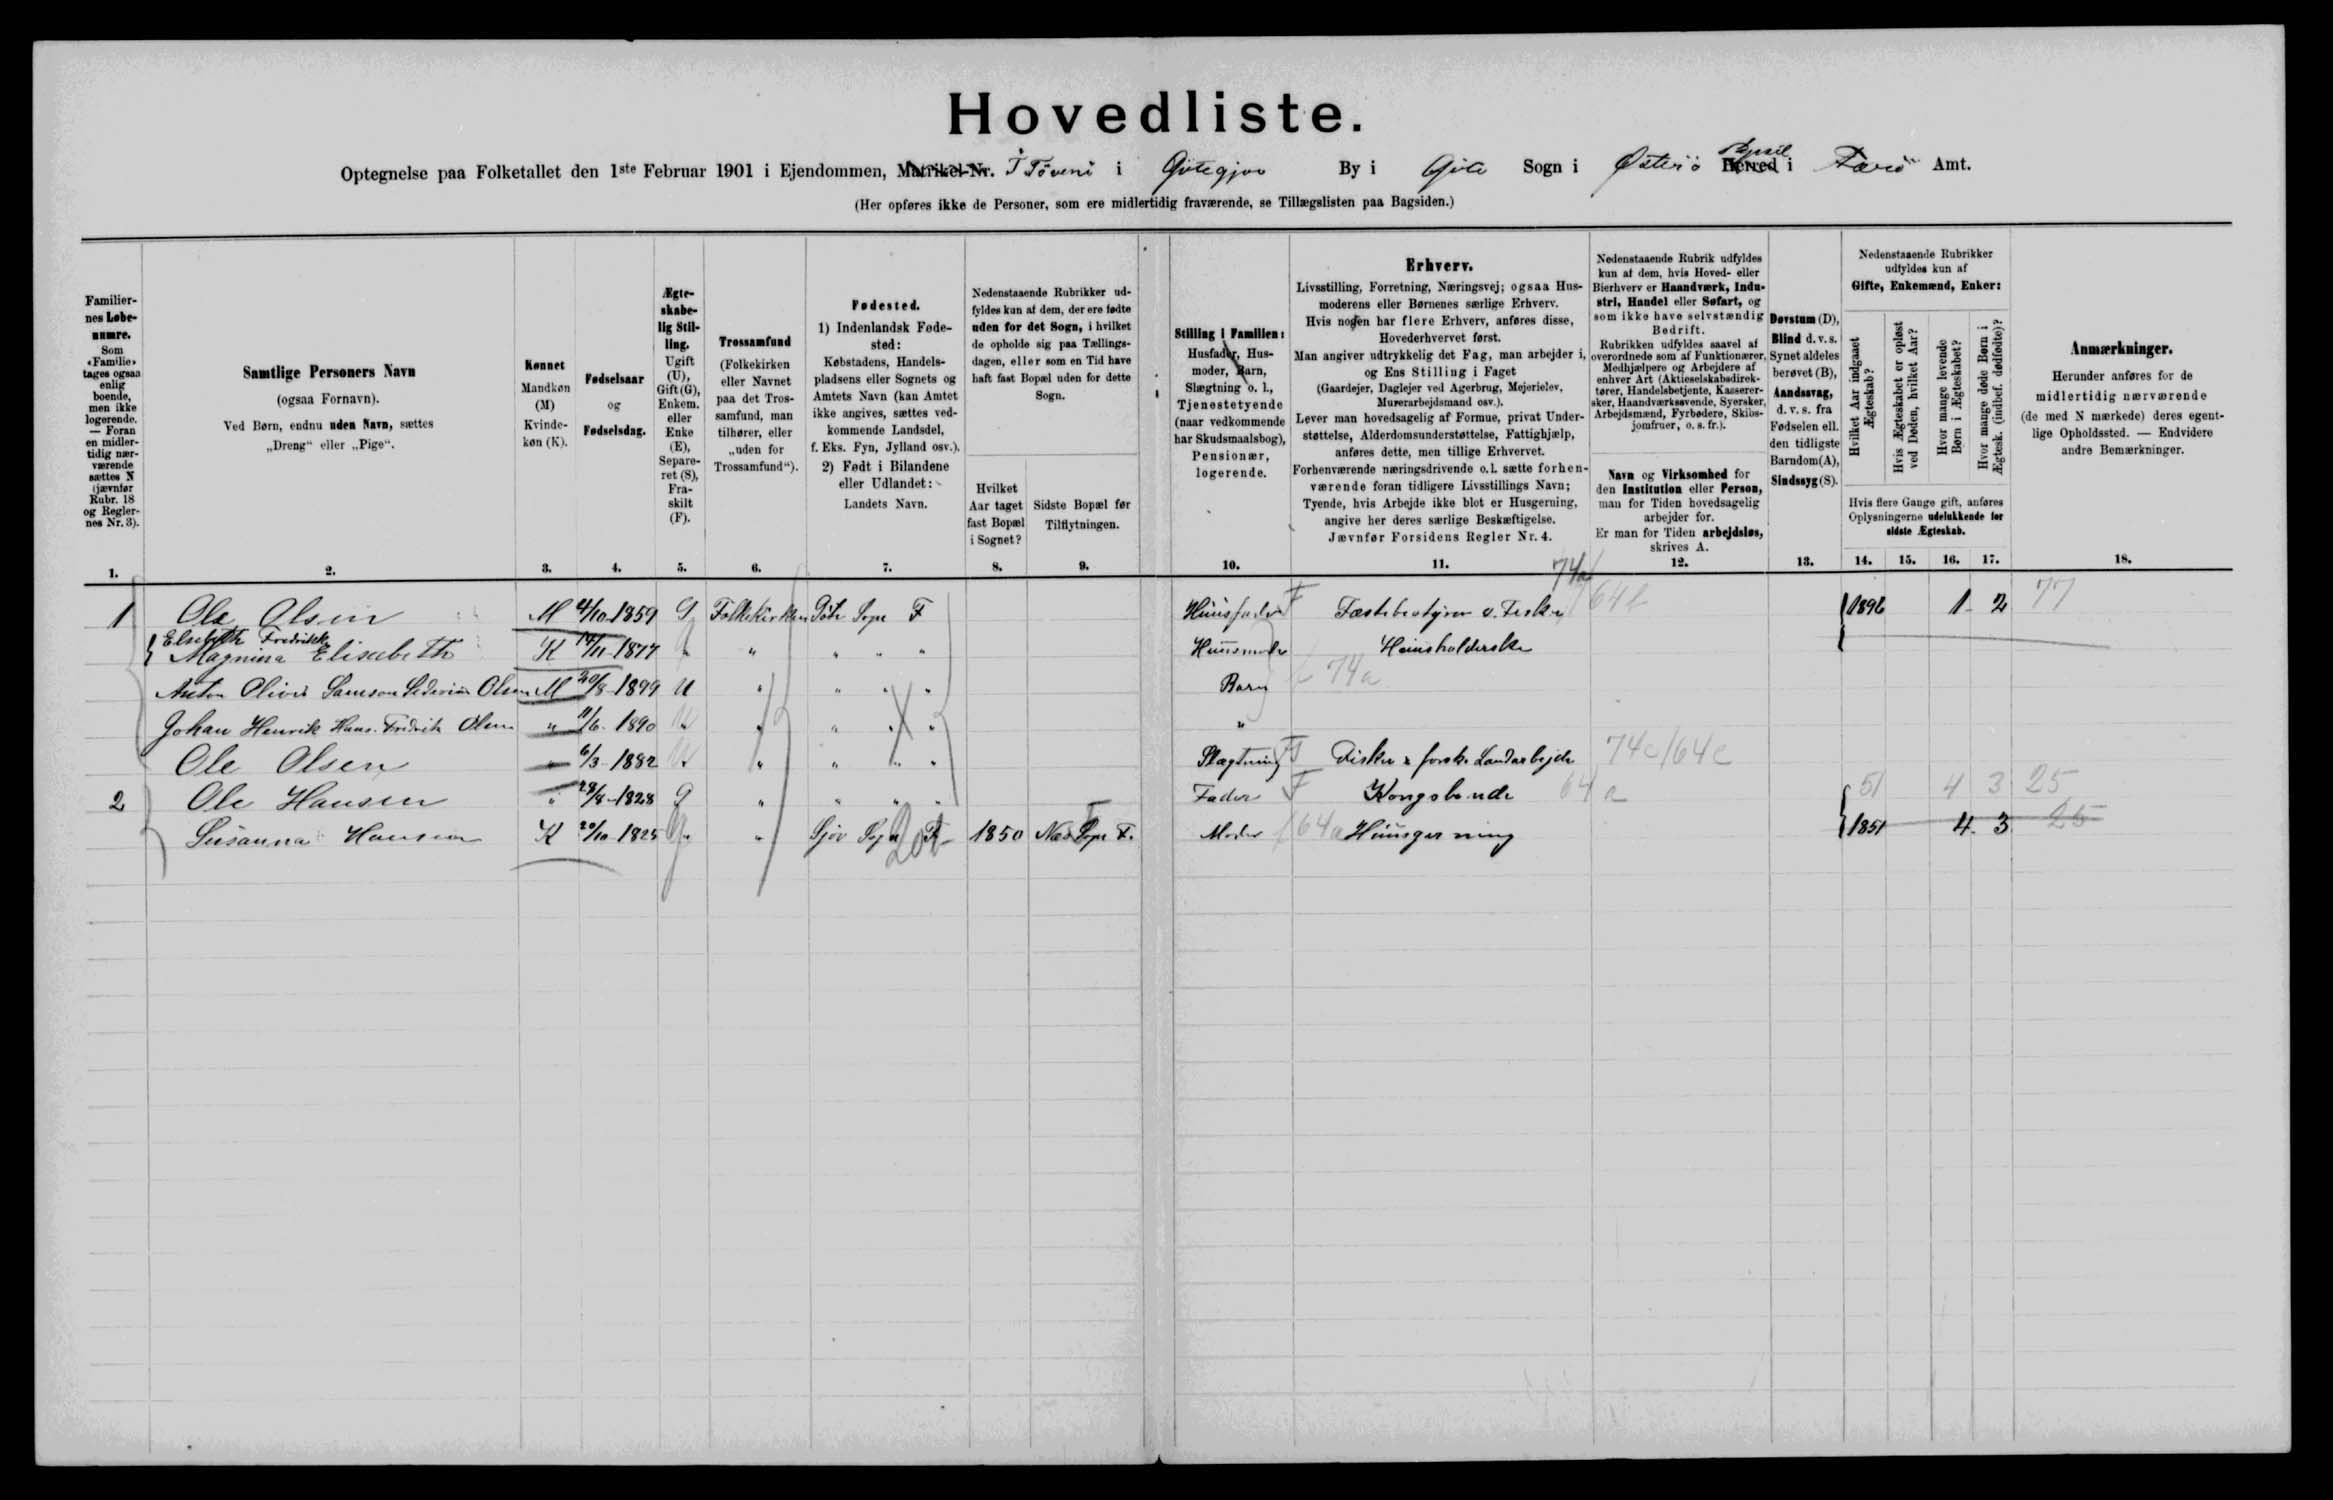 Hovedliste.
Optegnelse paa Folketallet den 1ste Februar 1901 i Ejendommen, Matrikel-Nr. Í Töveni i Götegjov By i Göte Sogn i Österö Syssel Herred i Færö Amt.
(Her opføres ikke de Personer, som ere midlertidig fraværende, se Tillægslisten paa Bagsiden.)
Familiernes Løbenumre.
Som «Familie» tages ogsaa enlig boende, men ikke logerende. — Foran en midlertidig nærværende sættes N (jævnfør Rubr. 18 og Reglernes Nr. 3).
1.
Samtlige Personers Navn
(ogsaa Fornavn).
Ved Børn, endnu uden Navn, sættes
„Dreng“ eller „Pige“.
2.
Kønnet
Mandkøn (M)
Kvindekøn (K).
3.
Fødselsaar
og
Fødselsdag.
4.
Ægteskabelig Stilling.
Ugift (U), Gift (G), Enkem. eller Enke (E), Separeret (S), Fraskilt (F).
5.
Trossamfund
(Folkekirken eller Navnet paa det Trossamfund, man tilhører, eller „uden for Trossamfund“).
6.
Fødested.
1) Indenlandsk Fødested:
Købstadens, Handelspladsens eller Sognets og Amtets Navn (kan Amtet ikke angives, sættes vedkommende Landsdel, f. Eks. Fyn, Jylland osv.).
2) Født i Bilandene eller Udlandet:
Landets Navn.
7.
Nedenstaaende Rubrikker udfyldes kun af dem, der ere fødte uden for det Sogn, i hvilket de opholde sig paa Tællingsdagen, eller som en Tid have haft fast Bopæl uden for dette Sogn.
Hvilket Aar taget fast Bopæl i Sognet?
8.
Sidste Bopæl før Tilflytningen.
9.
Stilling i Familien:
Husfader, Husmoder, Barn, Slægtning o. l., Tjenestetyende (naar vedkommende har Skudsmaalsbog), Pensionær, logerende.
10.
Erhverv.
Livsstilling, Forretning, Næringsvej; ogsaa Husmoderens eller Børnenes særlige Erhverv.
Hvis nogen har flere Erhverv, anføres disse, Hovederhvervet først.
Man angiver udtrykkelig det Fag, man arbejder i, og Ens Stilling i Faget
(Gaardejer, Daglejer ved Agerbrug, Mejerielev, Murerarbejdsmand osv.).
Lever man hovedsagelig af Formue, privat Understøttelse, Alderdomsunderstøttelse, Fattighjælp, anføres dette, men tillige Erhvervet.
Forhenværende næringsdrivende o. l. sætte forhenværende foran tidligere Livsstillings Navn; Tyende, hvis Arbejde ikke blot er Husgerning, angive her deres særlige Beskæftigelse.
Jævnfør Forsidens Regler Nr. 4.
11.
Nedenstaaende Rubrik udfyldes kun af dem, hvis Hoved- eller Bierhverv er Haandværk, Industri, Handel eller Søfart, og som ikke have selvstændig Bedrift.
Rubrikken udfyldes saavel af overordnede som af Funktionærer, Medhjælpere og Arbejdere af enhver Art (Aktieselskabsdirektører, Handelsbetjente, Kasserersker, Haandværkssvende, Syersker, Arbejdsmænd, Fyrbødere, Skibsjomfruer, o. s. fr.).
Navn og Virksomhed for den Institution eller Person, man for Tiden hovedsagelig arbejder for.
Er man for Tiden arbejdsløs, skrives A.
12.
Døvstum (D), Blind d. v. s. Synet aldeles berøvet (B), Aandssvag, d. v. s. fra Fødselen ell. den tidligste Barndom (A), Sindssyg (S).
13.
Nedenstaaende Rubrikker udfyldes kun af
Gifte, Enkemænd, Enker:
Hvilket Aar indgaaet Ægteskab?
Hvis Ægteskabet er opløst ved Døden, hvilket Aar?
Hvor mange levende Børn i Ægteskabet?
Hvor mange døde Børn i Ægtesk. (indbef. dødfødte)?
Hvis flere Gange gift, anføres Oplysningerne udelukkende for sidste Ægteskab.
14. 15. 16. 17.
Anmærkninger.
Herunder anføres for de midlertidig nærværende (de med N mærkede) deres egentlige Opholdssted. — Endvidere andre Bemærkninger.
18.
74a
1 Ole Olsen M 4/10-1859 G Folkekirken Göte Sogn F Huusfader F Fæstebestyrer o. Fisker 64b 1896 1 2 77
Elsebeth Fredrikke
Magnina Elisabeth K 14/11-1877 " " " " " Huusmoder Huusholderske
Anton Oliver Samson Severin Olsen M 20/8-1899 U " " " " Barn 74a
Johan Henrik Hans Fredrik Olsen " 11/6-1890 " " " " " "
Ole Olsen " 6/3-1882 " " " " " Slægtning F Fisker & forsk. Landarbejde 74c/64c
2 Ole Hansen " 28/8-1828 G " " " " Fader F Kongsbonde 64a 51 4 3 25
Susanna Hansen K 20/10-1825 G " Sjov Sogn F 1850 Næs Sogn F. Moder 64a Huusgerning 1851 4 3 25